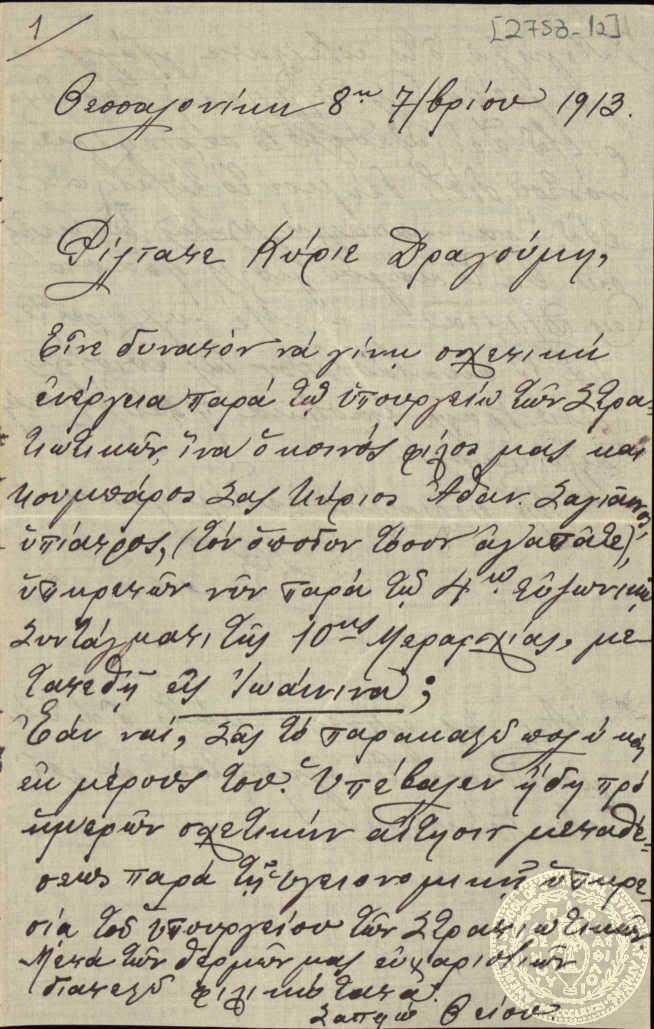 1
[2753-12]
Θεσσαλονίκη 8η 7/βρίου 1913.
Φίλτατε Κύριε Δραγούμη,
Εἶνε δυνατόν νά γίνῃ σχετική
ἐνέργεια παρά τῷ ὑπουργείῳ τῶν Στρα-
τιωτικῶν, ἵνα ὁ κοινός φίλος μας καί
κουμπάρος Σας κύριος Ἀθαν.
ὑπίατρος, (τόν ὁποῖον τόσον ἀγαπᾶτε),
ὑπηρετῶν νῦν παρά τῷ 4ῳ Εὐζωνικῷ
Συντάγματι τῆς 10ης Μεραρχίας, με
τατεθῇ εἰς Ἰωάννινα;
Ἐάν ναί, Σᾶς τό παρακαλῶ πολύ καί
ἐκ μέρους του. Ὑπέβαλεν ἤδη πρό
ἡμερῶν σχετικήν αἴτησιν μεταθέ-
σεως παρά τῇ ὑγειονομικῇ ὑπηρε-
σίᾳ τοῦ ὑπουργείου τῶν Στρατιωτικῶν.
Μετά τῶν θερμῶν μας εὐχαριστιῶν
διατελῶ φιλικώτατα.
Θείου.